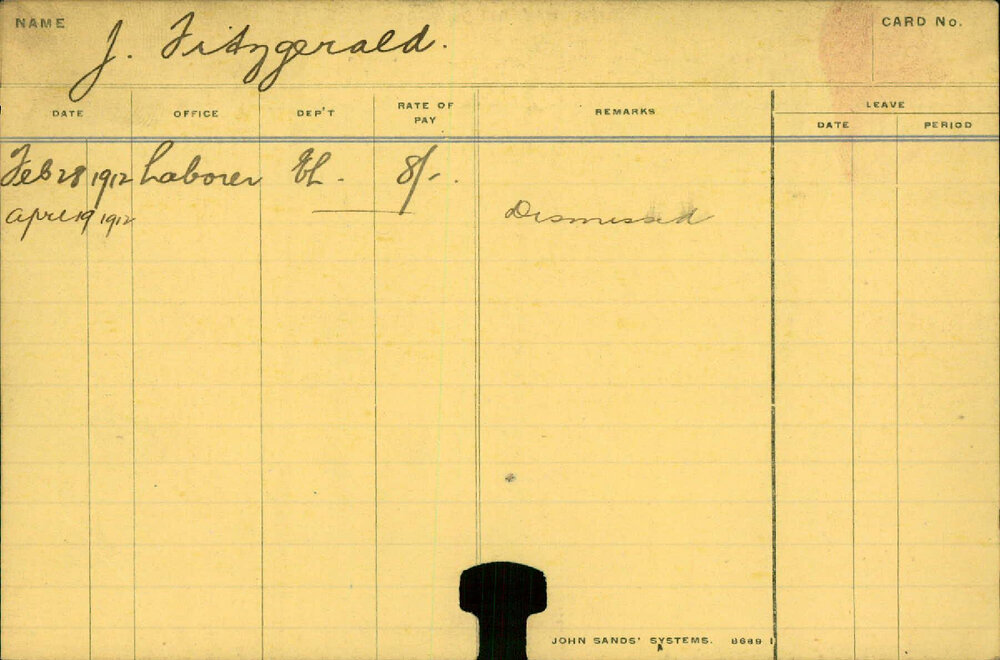 NAME J. Fitzgerald. CARD No.
DATE OFFICE DEP'T RATE OF PAY REMARKS LEAVE
DATE PERIOD
Feb 28 1912 Laborer 8/-.
April 19 1912 Dismissed
JOHN SANDS' SYSTEMS. 8689 1